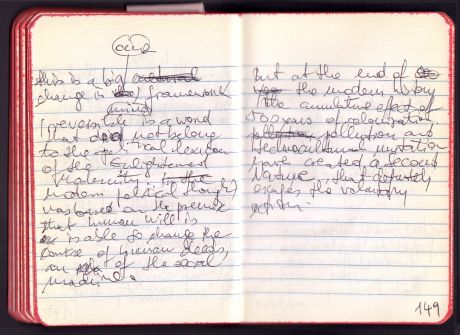 our
this is a big cultural
change in the framework
mind
Irreversible is a word
that did not belong
to the political lexicon
of the Enlightened
modernity. It in the
modern political thought
was based on the premise
that human will is
is able to change the
course of human deeds,
an of the social
machine.
But at the end of
the modern history
the cumulative effect of
500 years of colonization
pollution and
technocultural mutation
have created a second
Nature that definitely
escapes the voluntary
action.
149